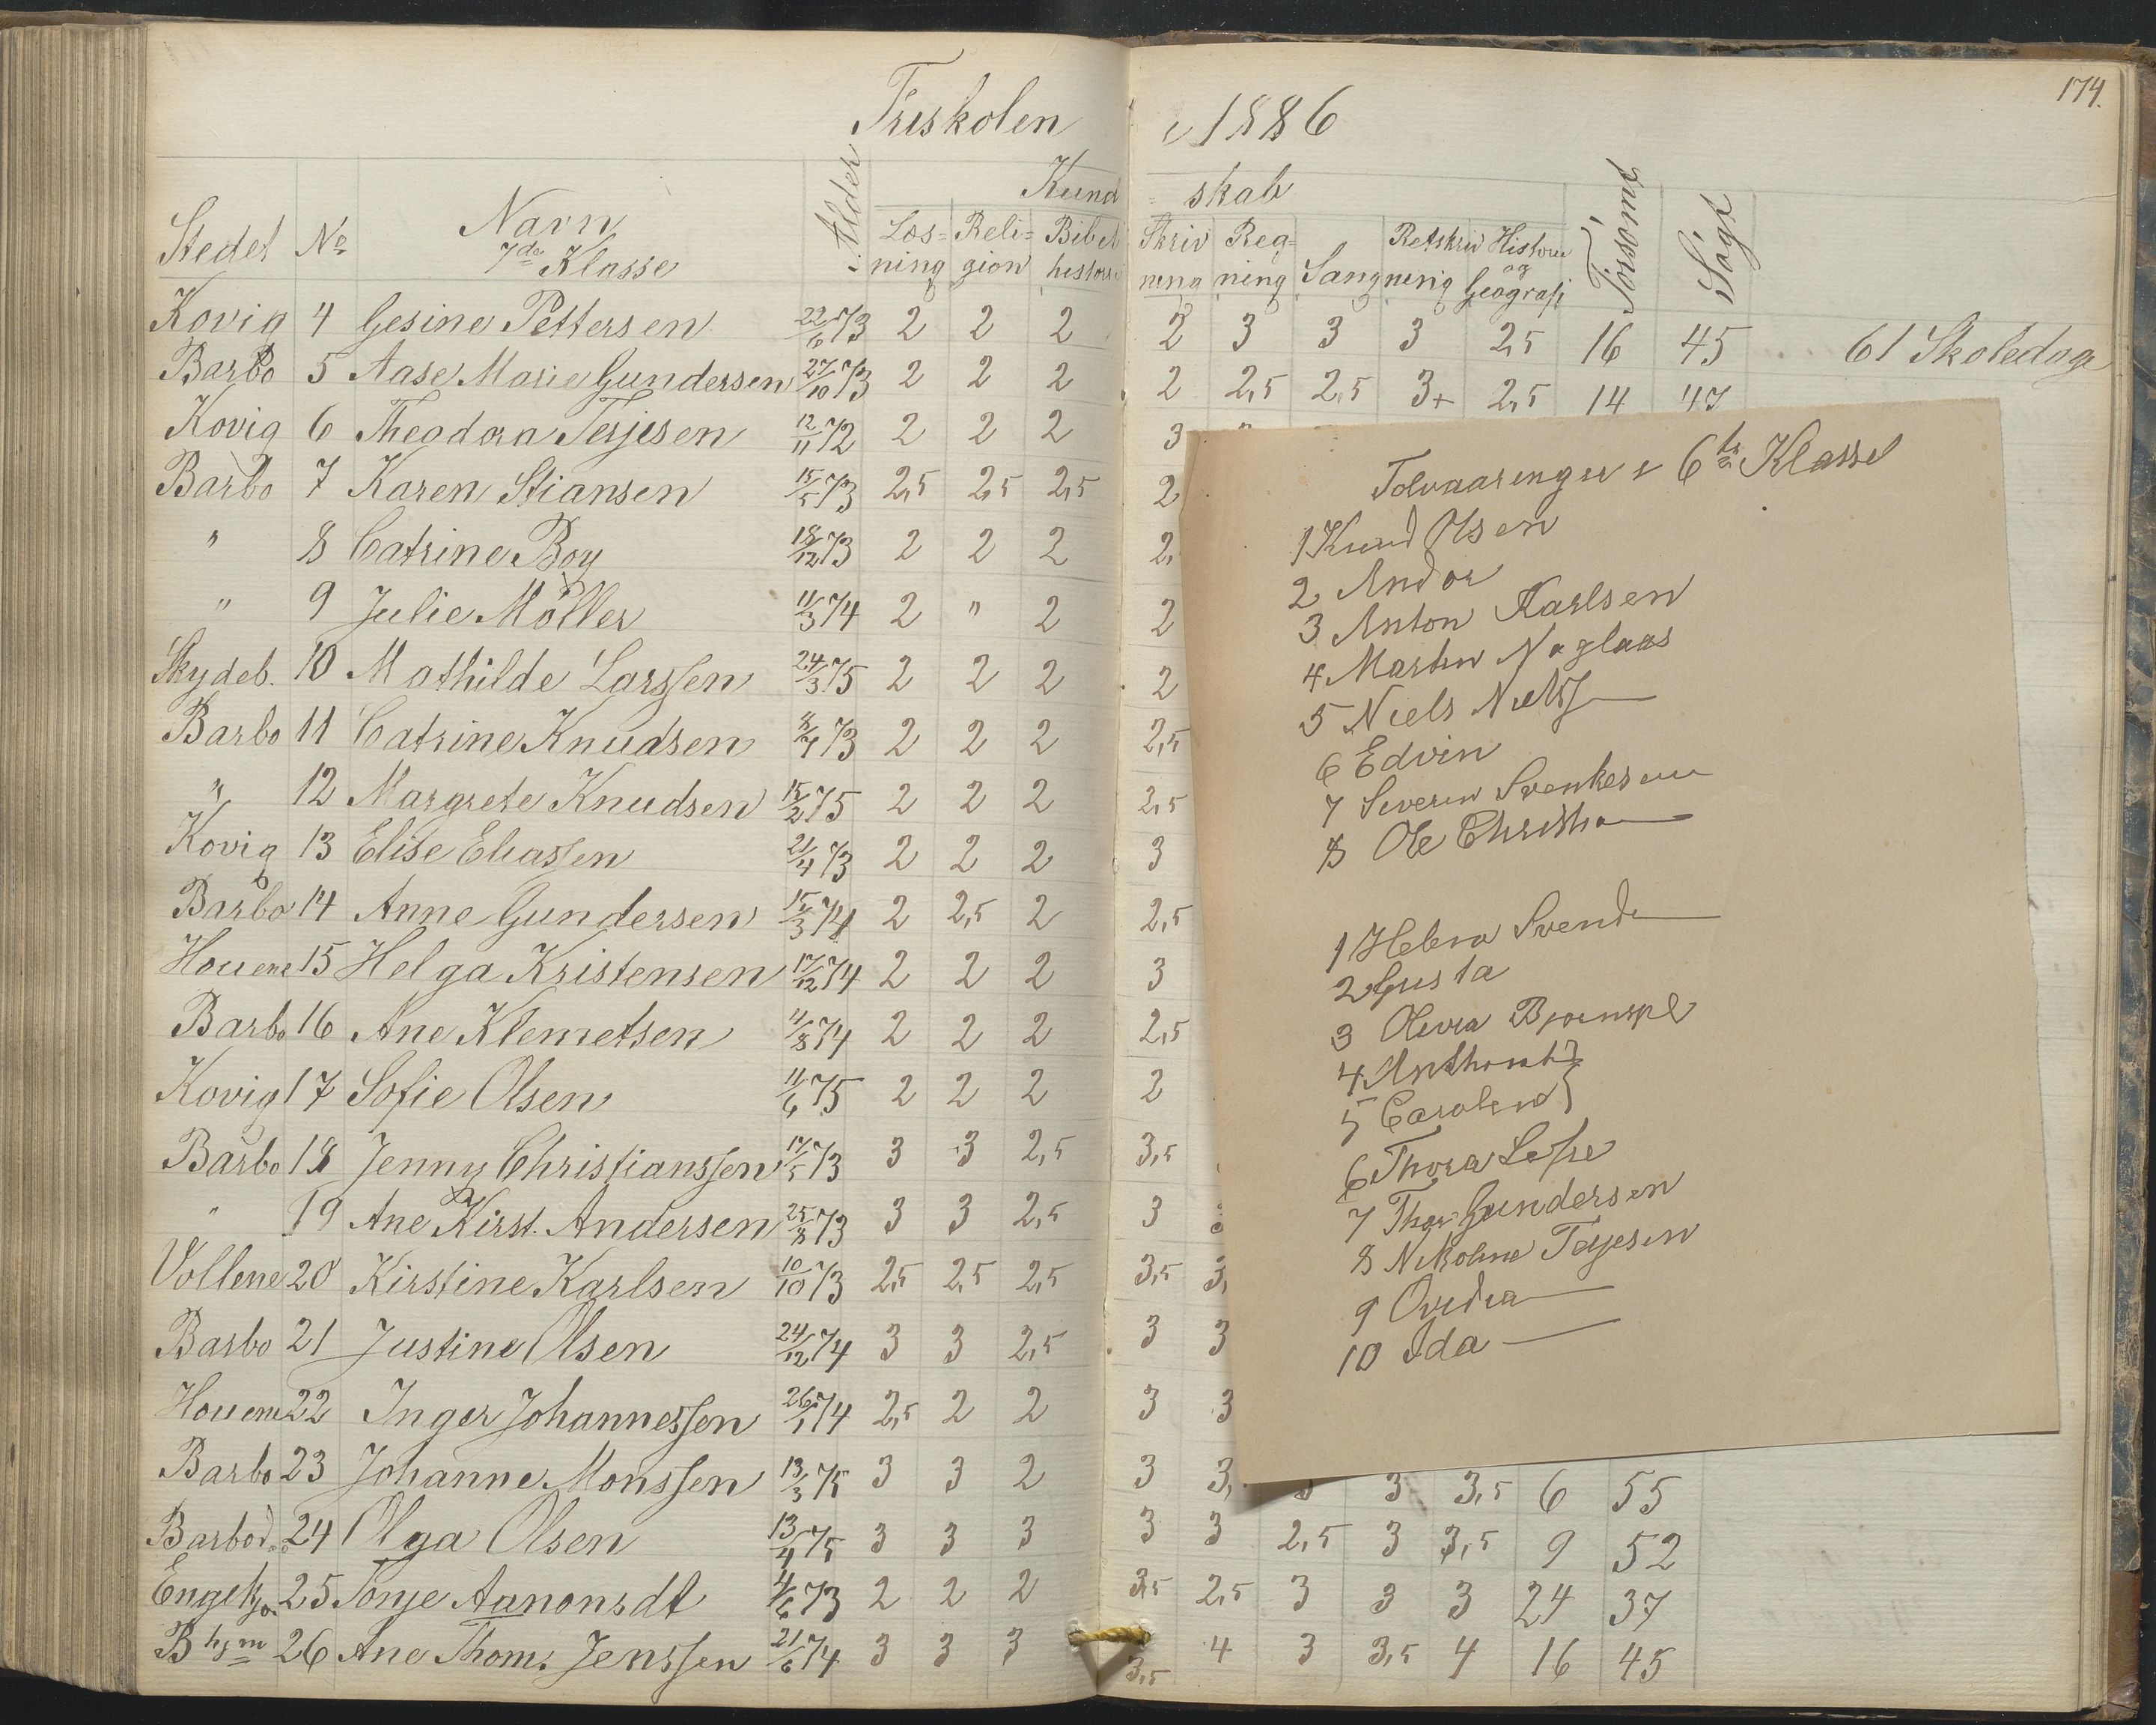 174.
Friskolen i 1886
Kund=skab
Stedet No Navn Alder Læs=ning Reli=gion Bibelhistorie Skrivning Reg=ning Sang Retskrivning Historie og Geografi Forsømt Søgt
7de Klasse
Kovig 4 Gesine Pettersen 22/6 73 2 2 2 2 3 3 3 2,5 16 45 61 Skoledage
Barbo 5 Aase Marie Gundersen 27/10 73 2 2 2 2 2,5 2,5 3+ 2,5 14 47
Kovig 6 Theodora Terjesen 12/11 72 2 2 2 3
Barbo 7 Karen Stiansen 15/5 73 2,5 2,5 2,5 2
" 8 Catrine Boy 18/12 73 2 2 2 2,
" 9 Julie Möller 11/3 74 2 " 2 2
Skydeb. 10 Mathilde Larssen 24/3 75 2 2 2 2
Barbo 11 Catrine Knudsen 73 2 2 2 2,5
" 12 Margrete Knudsen 15/2 75 2 2 2 2,5
Kovig 13 Elise Eliassen 21/4 73 2 2 2 3
Barbo 14 Anne Gundersen 15/3 74 2 2,5 2 2,5
Houene 15 Helga Kristensen 17/12 74 2 2 2 3
Barbo 16 Ane Klemetsen 4/8 74 2 2 2 2,5
Kovig 17 Sofie Olsen 11/6 75 2 2 2 2
Barbo 18 Jenny Christianssen 17/5 73 3 3 2,5 3,5
" 19 Ane Kirst. Andersen 25/8 73 3 3 2,5 3
Vollene 20 Kirstine Karlsen 10/10 73 2,5 2,5 2,5 3,5 3,
Barbo 21 Justine Olsen 24/12 74 3 3 2,5 3 3
Houene 22 Inger Johannessen 26/1 74 2,5 2 2 3 3
Barbo 23 Johanne Monssen 13/3 75 3 3 2 3 3, 3 3 3,5 6 55
Barbo 24 Olga Olsen 13/4 75 3 3 3 3 3 2,5 3 3,5 9 52
25 Tonje Aanonsdt 4/6 73 2 2 2 3,5 2,5 3 3 3 24 37
26 Ane Thom. Jenssen 21/6 74 3 3 3 3,5 4 3 3,5 4 16 45
Tolvaaringer i 6te Klasse
1 Knud Olsen
2 Andor
3 Anton Karlsen
4 Martin Naglaas
5 Niels Nielss
6 Edvin
7 Severin
8 Ole Christia
1 Helena Svend
2 Gusta
3 Olivia
4
5 Caroline }
6 Thora
7 Gundersen
8 Nikoline Terjesen
9
10 Ida